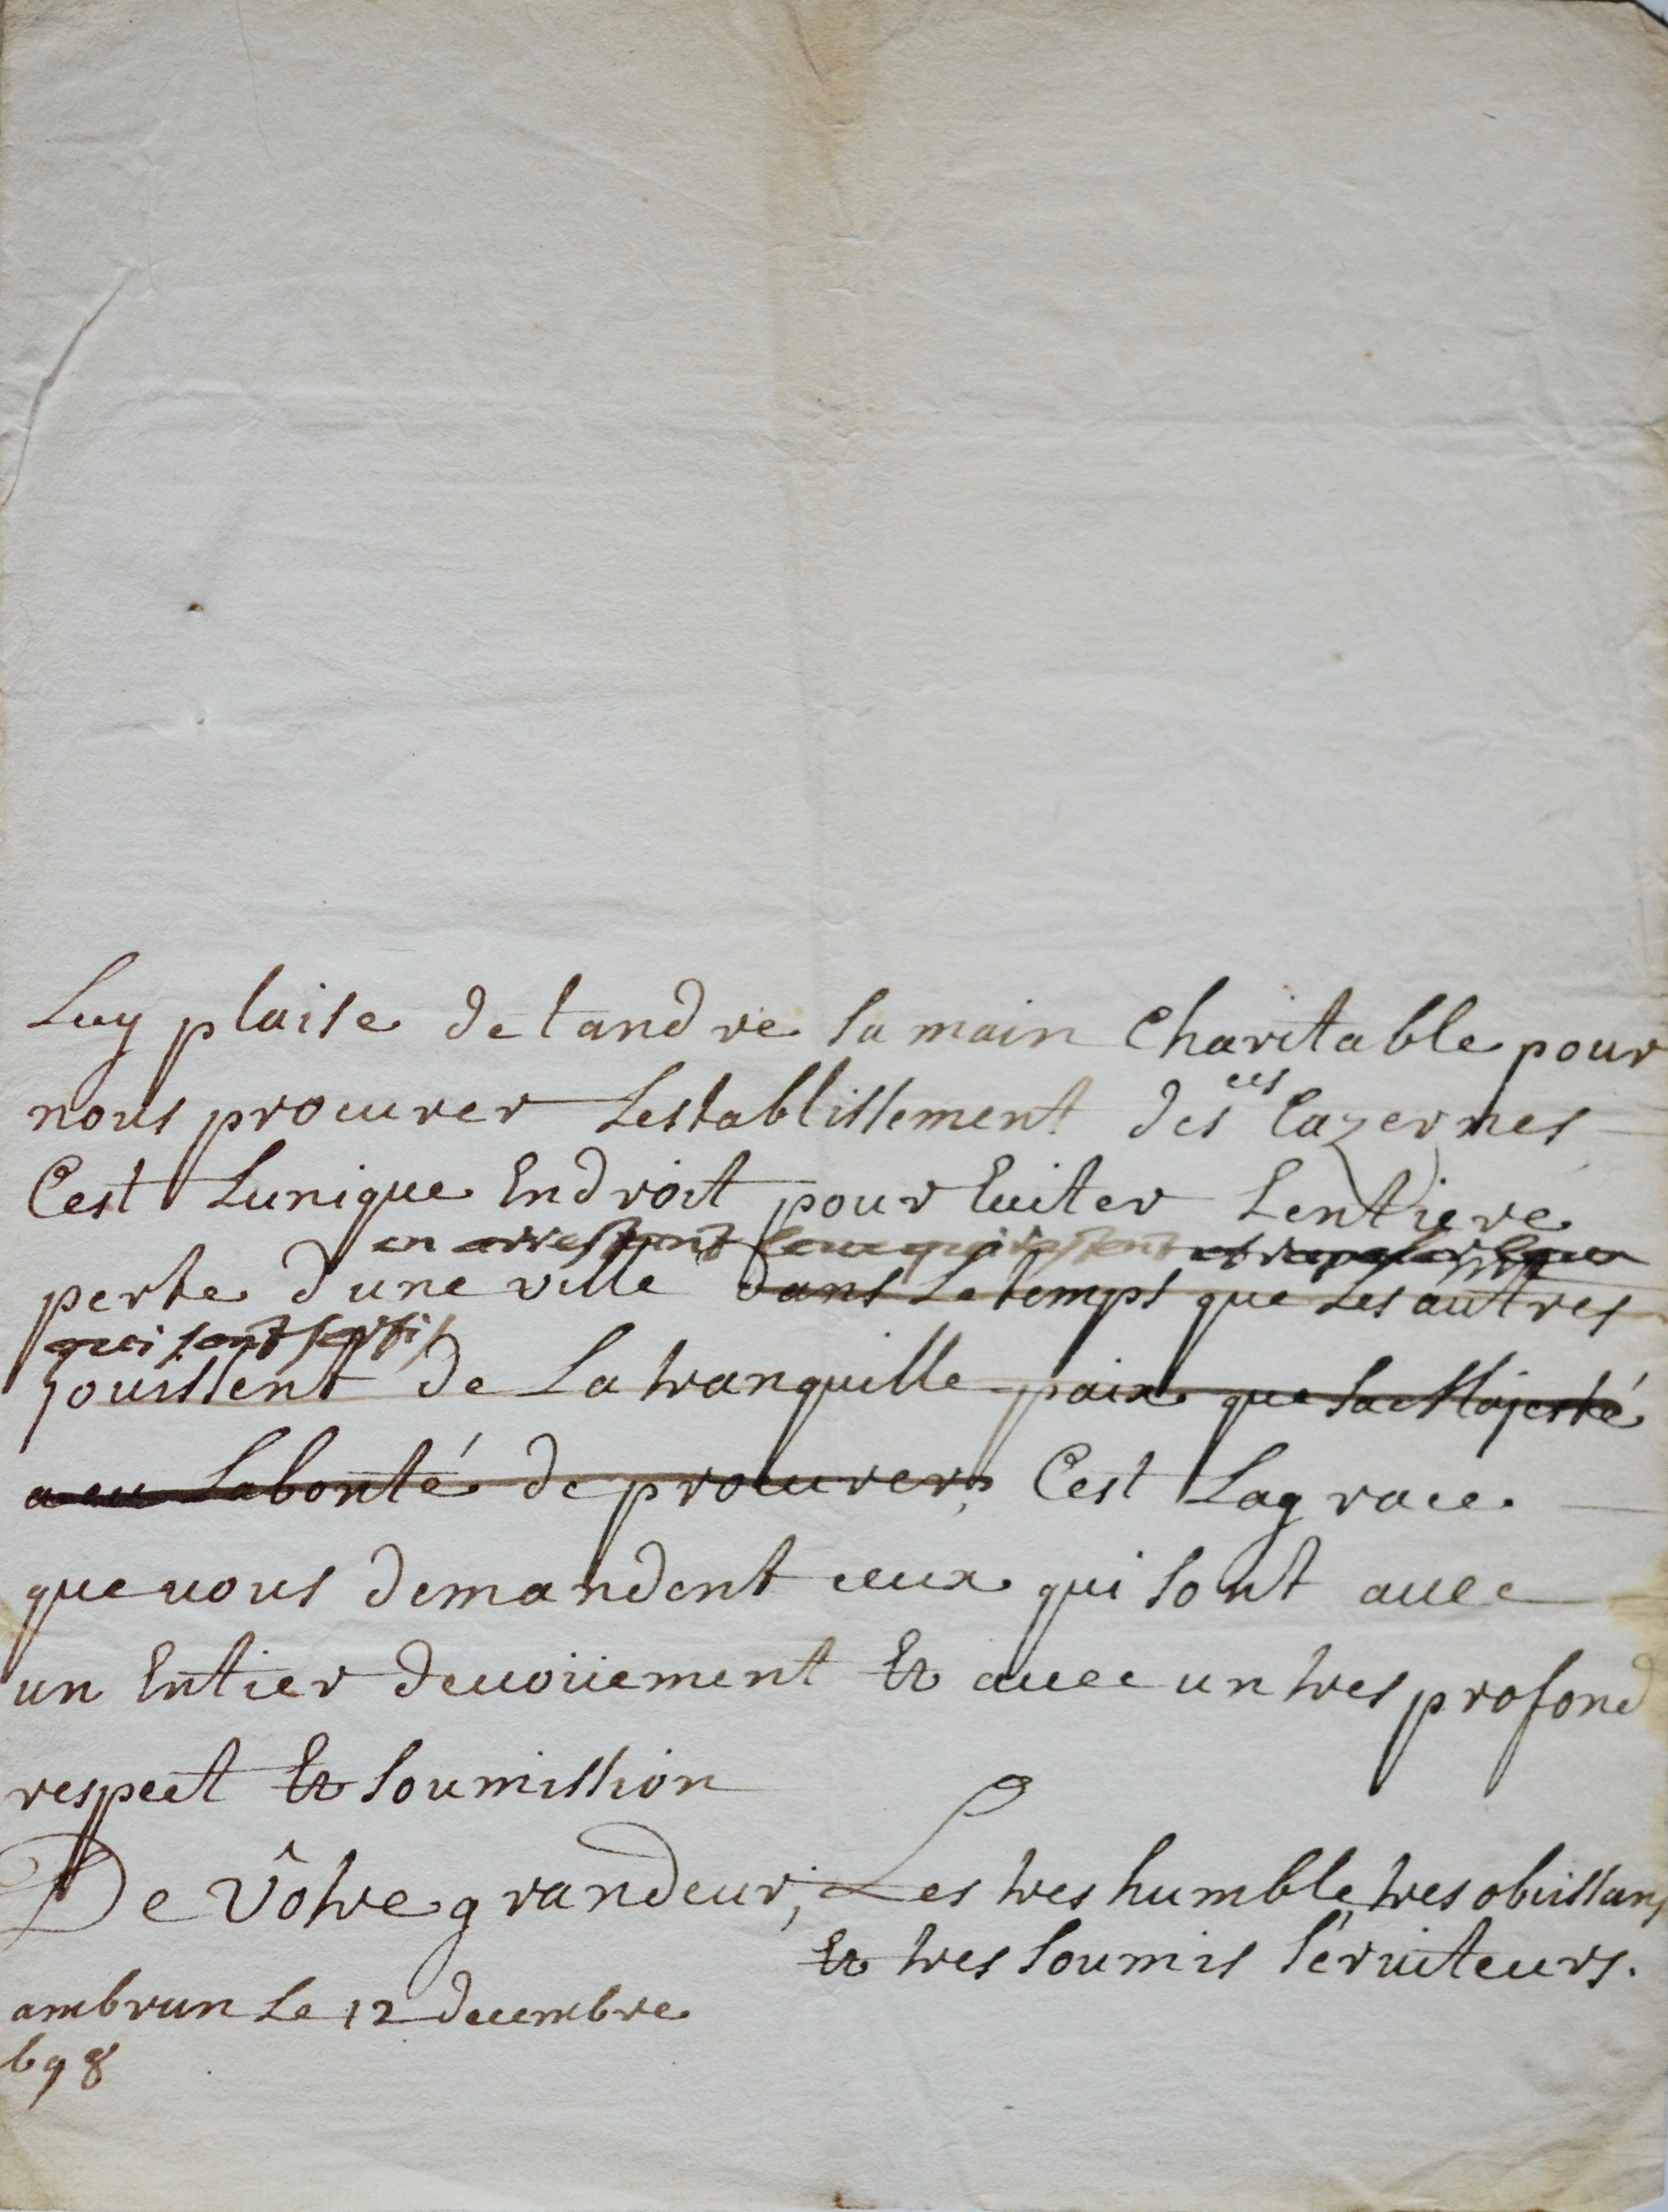 Luy plaise de tandre sa main Charitable pour
nous procurer Lestablissement des ces Cazernes
C'est Lunique Endroit pour Euiter Lentiere
en arrestant ceux qui restent et rapeler ceux
perte d'une ville dans Le temps que Les autres
qui sont sortis
jouissent de La tranquille paix que sa Majesté
a eu La bonté de procurer, C'est La grace
que vous demandent ceux qui sont auec
un Entier deuoüement Et auec un tres profond
respect Et soumission
De Vôtre grandeur, Les tres humble tres obeissans
Et tres soumis seruiteurs.
ambrun Le 12 decembre
698